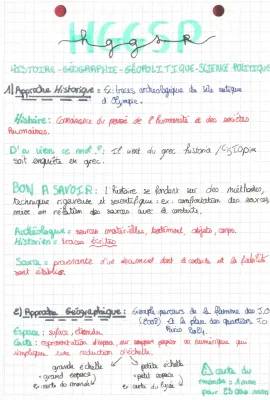 HGGSP
hggsp
HISTOIRE - GÉOGRAPHIE - GÉOPOLITIQUE - SCIENCE POLITIQUE
1) Approche Historique = Ex: traces archéologique du site antique
d'Olympie.
Histoire: Connaissance du passé de l'humanité et des sociétés
humaines.
D'où vient ce mot ? : Il vient du grec historia /
soit enquête en grec.
BON À SAVOIR : l'histoire se fondent sur des méthodes,
technique rigoureuse et scientifique : ex : confrontation des sources,
mise en relation des sources avec le contexte.
Archéologue = sources matérielles, bâtiment, objets, corps.
Historien = traces écrites
Source = provenante d'un document dont le contexte et la fiabilité
sont établies.
2) Approche Géographique : Exemple parcours de la flamme des J.O
(2024) et la plan des quartier J.O
Paris 2024.
Espace : surface, étendue.
Carte : représentation d'espace, sur support papier ou numérique qui
implique une réduction d'échelle.
grande échelle
petite échelle
- grand espace
- petit espace
ex: carte du monde
ex: carte du lycée
carte du
monde = 1 cm
pour